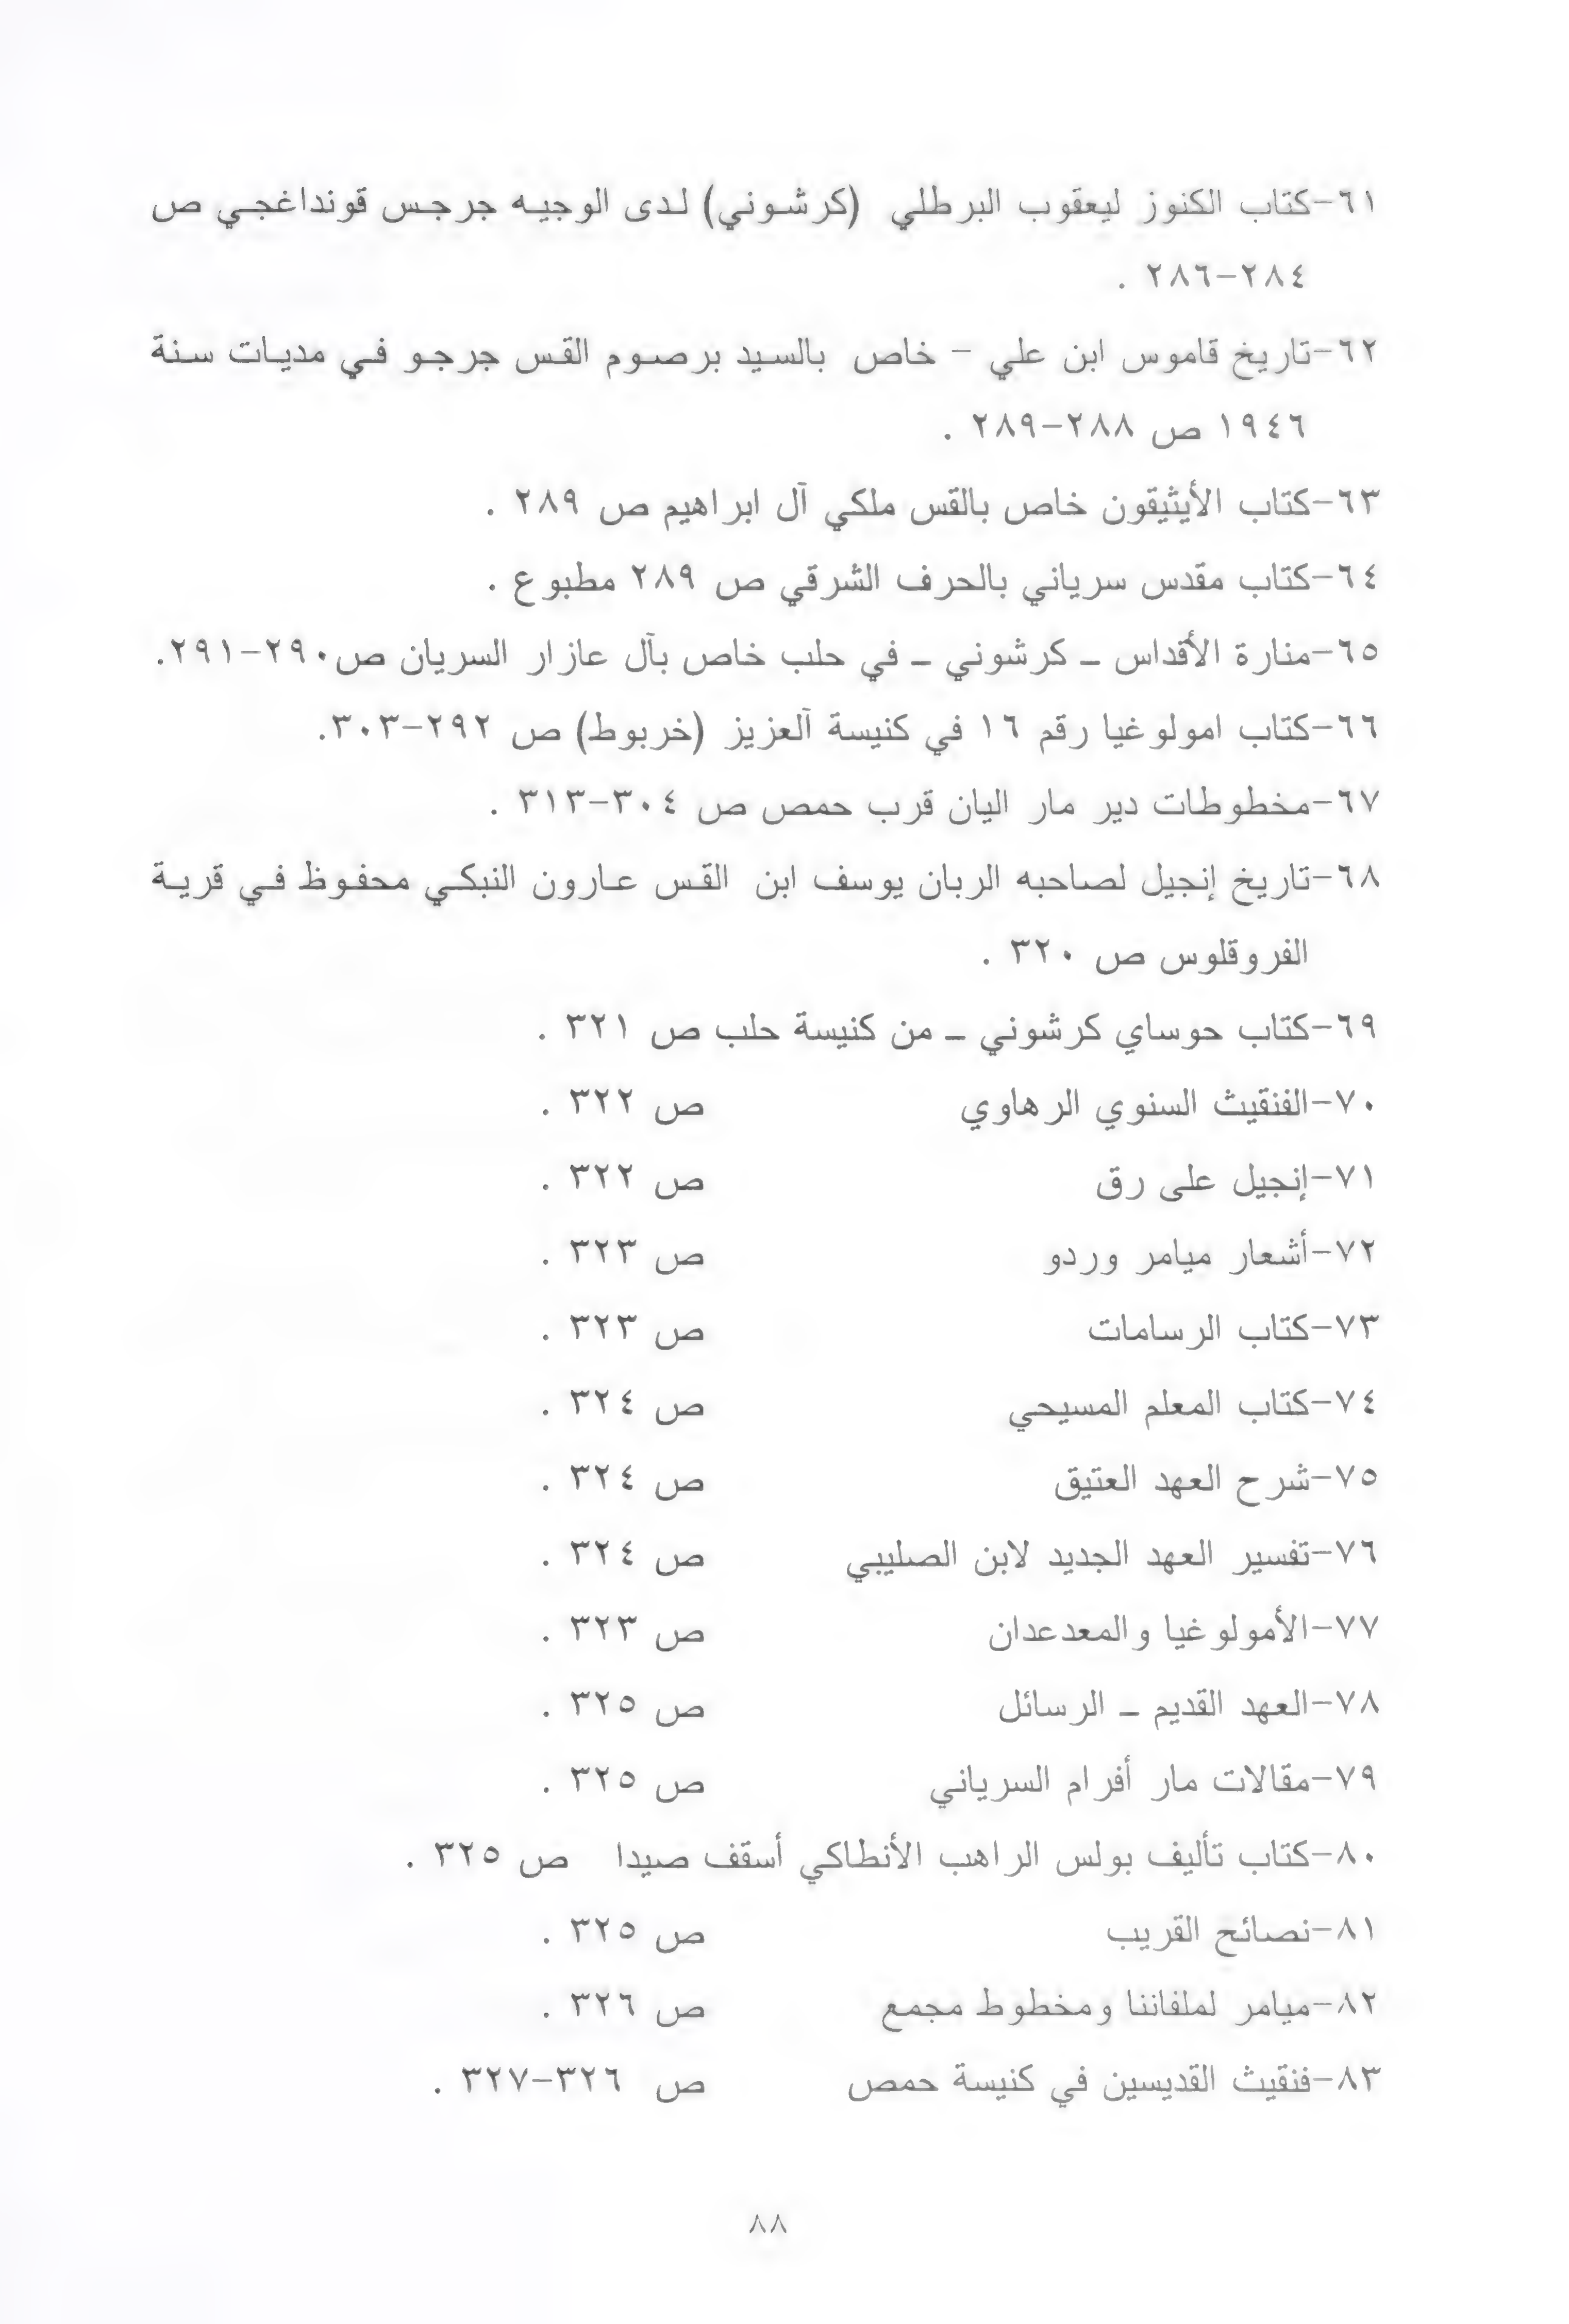 ٦١-كتاب الكنوز ليعقوب البرطلي (كرشوني) لدى الوجيه جرجس قونداغجي ص
٢٨٤-٢٨٦ .
٦٢-تاريخ قاموس ابن علي - خاص بالسيد برصوم القس جرجو في مديات سنة
١٩٤٦ ص ٢٨٨-٢٨٩ .
٦٣-كتاب الأيثيقون خاص بالقس ملكي آل ابراهيم ص ٢٨٩ .
٦٤-كتاب مقدس سرياني بالحرف الشرقي ص ٢٨٩ مطبوع .
٦٥-منارة الأقداس ـ كرشوني ـ في حلب خاص بآل عازار السريان ص٢٩٠-٢٩١.
٦٦-كتاب امولوغيا رقم ١٦ في كنيسة آلعزيز (خربوط) ص ٢٩٢-٣٠٣.
٦٧-مخطوطات دير مار اليان قرب حمص ص ٣٠٤-٣١٣ .
٦٨-تاريخ إنجيل لصاحبه الربان يوسف ابن القس عارون النبكي محفوظ في قرية
الفروقلوس ص ٣٢٠ .
٦٩-كتاب حوساي كرشوني ـ من كنيسة حلب ص ٣٢١ .
٧٠-الفنقيث السنوي الرهاوي ص ٣٢٢ .
٧١-إنجيل على رق ص ٣٢٢ .
٧٢-أشعار ميامر وردو ص ٣٢٣ .
٧٣-كتاب الرسامات ص ٣٢٣ .
٧٤-كتاب المعلم المسيحي ص ٣٢٤ .
٧٥-شرح العهد العتيق ص ٣٢٤ .
٧٦-تفسير العهد الجديد لابن الصليبي ص ٣٢٤ .
٧٧-الأمولوغيا والمعدعدان ص ٣٢٣ .
٧٨-العهد القديم ـ الرسائل ص ٣٢٥ .
٧٩-مقالات مار أفرام السرياني ص ٣٢٥ .
٨٠-كتاب تأليف بولس الراهب الأنطاكي أسقف صيدا ص ٣٢٥ .
٨١-نصائح القريب ص ٣٢٥ .
٨٢-ميامر لملفاننا ومخطوط مجمع ص ٣٢٦ .
٨٣-فنقيث القديسين في كنيسة حمص ص ٣٢٦-٣٢٧ .
٨٨